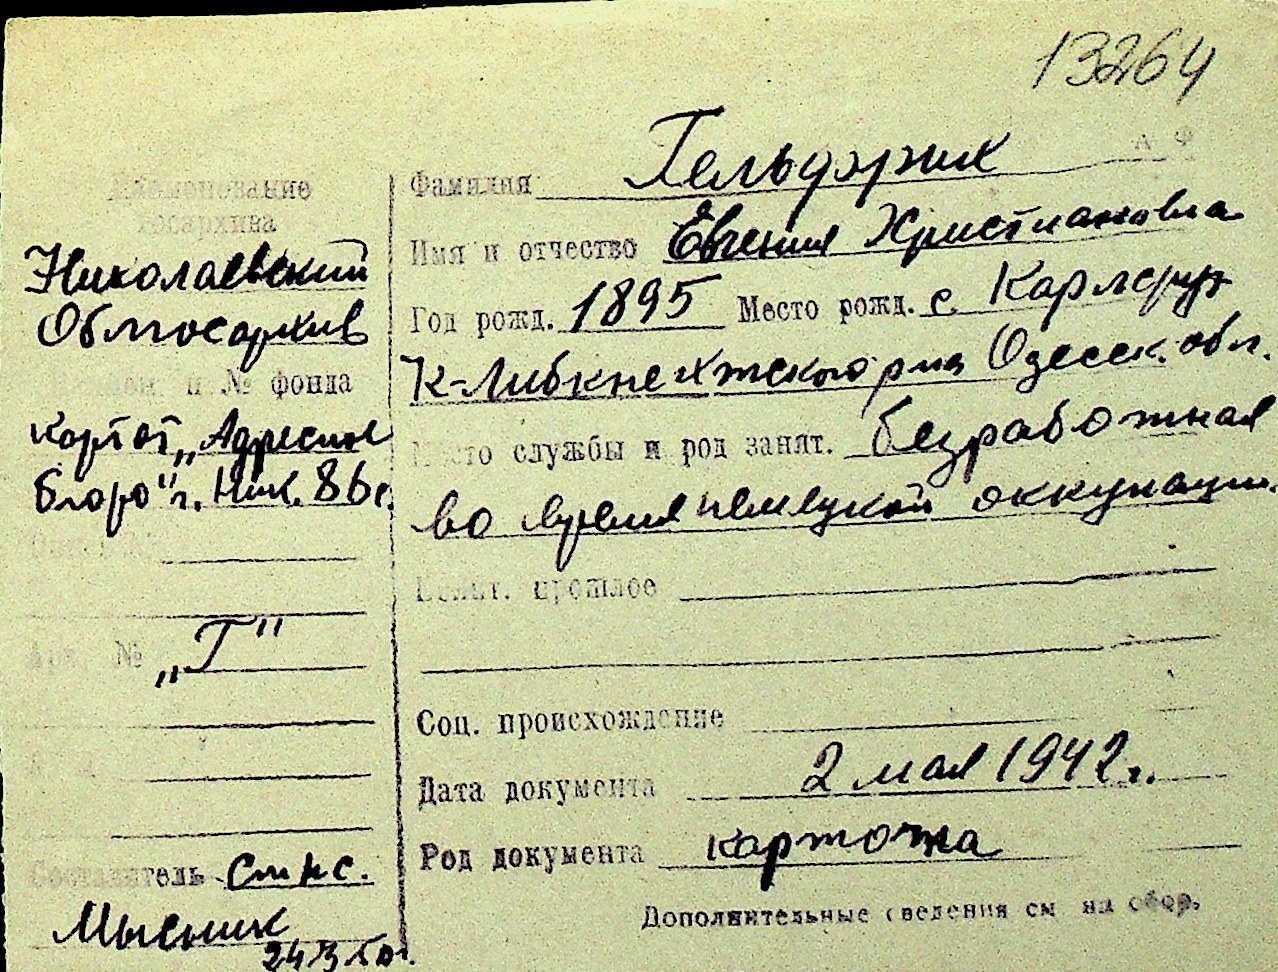 13264
Наименование
Госархива
Николаевский
Облгосархив
и № фонда
Картот. „Адресное
бюро" г. Ник. 86 с.
Арх. №
„Г"
Составитель
Мысник
24 3 50 г.
Фамилия Гельдрих
Имя и отчество Евгения Христиановна
Год рожд. 1895 Место рожд. с Карлсруэ
К-Либкнехтского р на Одесск. обл.
Место службы и род занят. безработная
во время немецкой оккупации.
Полит. прошлое
Соц. происхождение
Дата документа 2 мая 1942 г.
Род документа картотка
Дополнительные сведения см на обор.